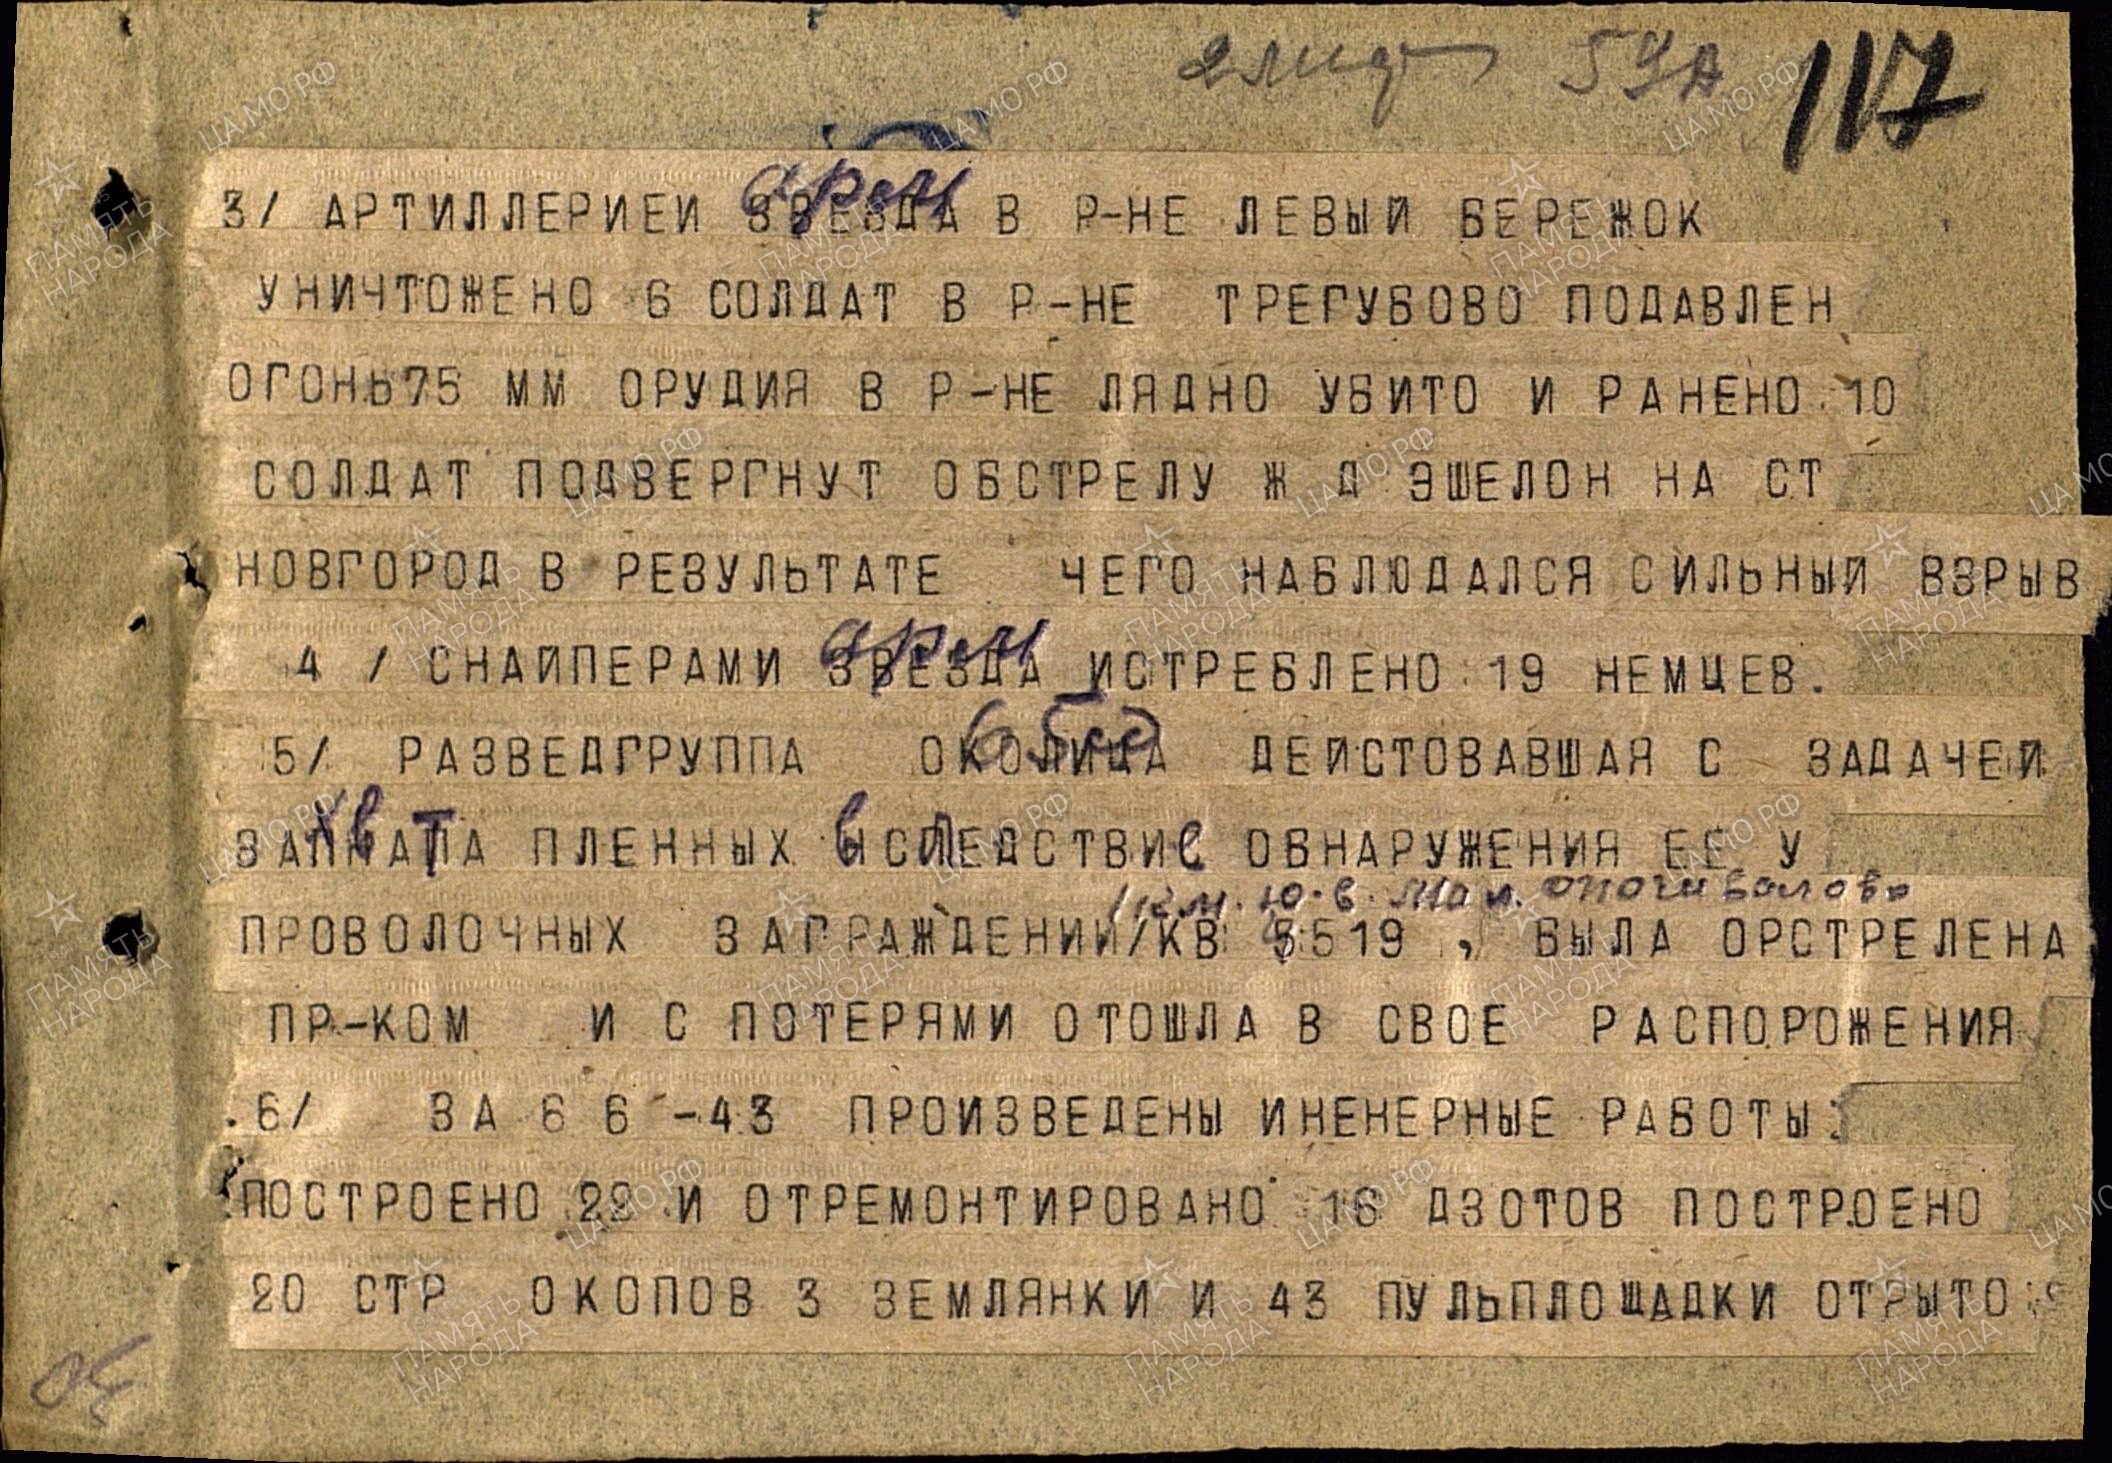 2 лист 59А 117
3/ АРТИЛЛЕРИЕЙ ЗВЕЗДА В Р-НЕ ЛЕВЫЙ БЕРЕЖОК
арм
УНИЧТОЖЕНО 6 СОЛДАТ В Р-НЕ ТРЕГУБОВО ПОДАВЛЕН
ОГОНЬ75 ММ ОРУДИЯ В Р-НЕ ЛЯДНО УБИТО И РАНЕНО 10
СОЛДАТ ПОДВЕРГНУТ ОБСТРЕЛУ Ж Д ЭШЕЛОН НА СТ
НОВГОРОД В РЕЗУЛЬТАТЕ ЧЕГО НАБЛЮДАЛСЯ СИЛЬНЫЙ ВЗРЫВ
арм
4 / СНАЙПЕРАМИ ЗВЕЗДА ИСТРЕБЛЕНО 19 НЕМЦЕВ.
5/ РАЗВЕДГРУППА ОКОЛИЦА ДЕЙСТОВАВШАЯ С ЗАДАЧЕЙ
ЗАХВАТА ПЛЕННЫХ ВСЛЕДСТВИЕ ОБНАРУЖЕНИЯ ЕЕ У
1 км. ю.в. Мал. Опочивалово
ПРОВОЛОЧНЫХ ЗАГРАЖДЕНИЙ/КВ 5519 , БЫЛА ОРСТРЕЛЕНА
ПР-КОМ И С ПОТЕРЯМИ ОТОШЛА В СВОЕ РАСПОРОЖЕНИЯ
.6/ ЗА 6 6 -43 ПРОИЗВЕДЕНЫ ИНЕНЕРНЫЕ РАБОТЫ:
ПОСТРОЕНО 22 И ОТРЕМОНТИРОВАНО 16 ДЗОТОВ ПОСТРОЕНО
20 СТР ОКОПОВ 3 ЗЕМЛЯНКИ И 43 ПУЛЬПЛОЩАДКИ ОТРЫТО
ПАМЯТЬ НАРОДА
ЦА МО РФ